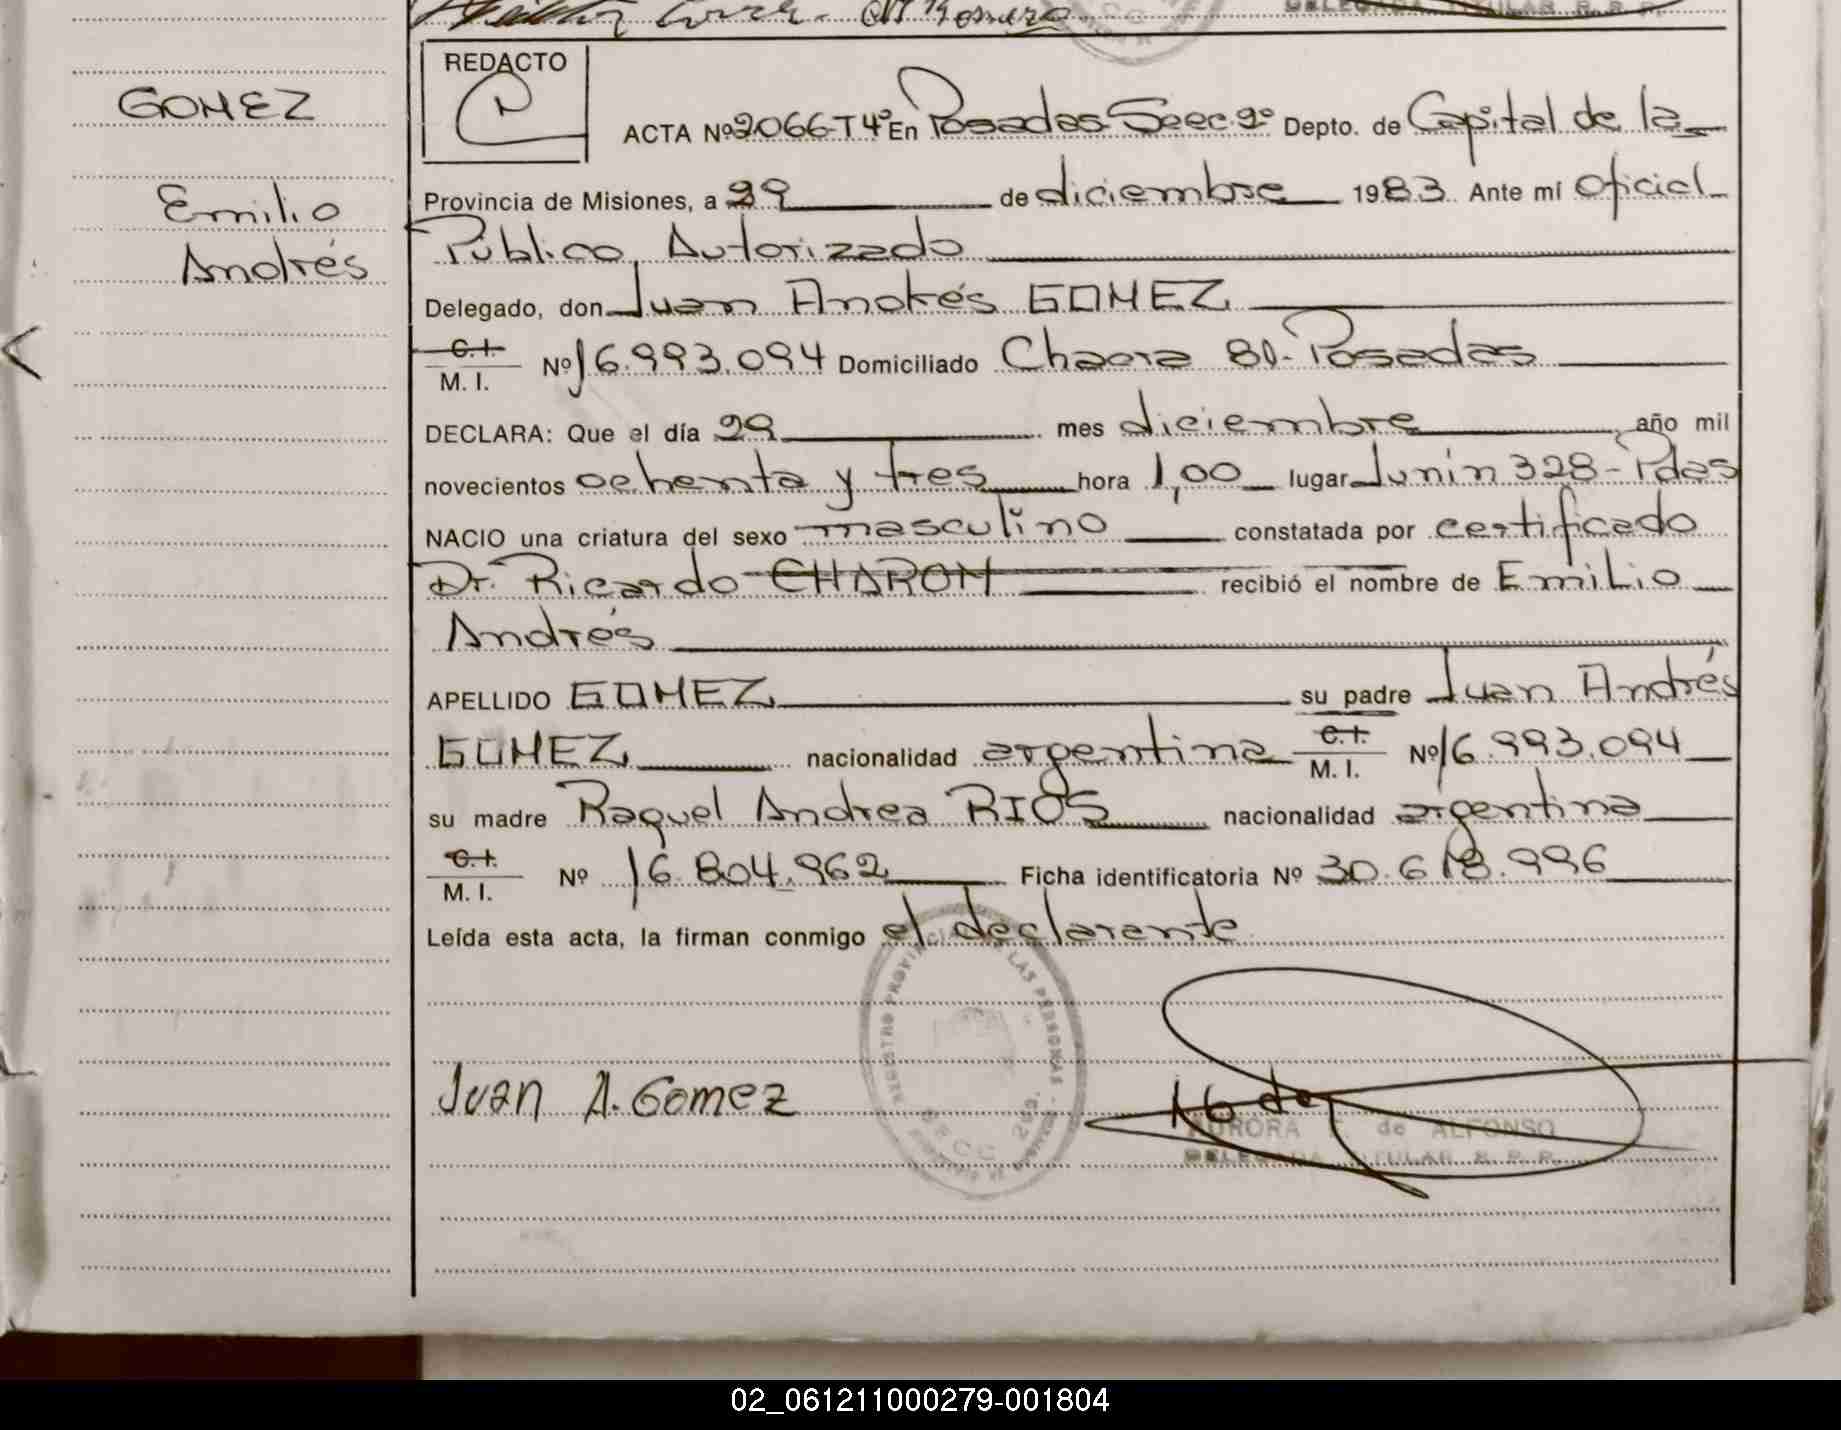 DELEGADA TITULAR R.P.P.
REDACTO
GOMEZ
Emilio
Andrés
ACTA Nº 2066-T4º En Posadas Secc. 2º Depto. de Capital de la
Provincia de Misiones, a 29 de diciembre 1983. Ante mí Oficial
Público Autorizado
Delegado, don Juan Andrés GOMEZ
C.I.
M. I. Nº 16.993.094 Domiciliado Chacra 80-Posadas
DECLARA: Que el día 29 mes diciembre año mil
novecientos ochenta y tres hora 1,00 lugar Junín 328-Pdas
NACIO una criatura del sexo masculino constatada por certificado
Dr. Ricardo CHARON recibió el nombre de Emilio
Andrés
APELLIDO GOMEZ su padre Juan Andrés
GOMEZ nacionalidad argentina C.I.
M. I. Nº 16.993.094
su madre Raquel Andrea RIOS nacionalidad argentina
C.I.
M. I. Nº 16.804.962 Ficha identificatoria Nº 30.618.996
Leída esta acta, la firman conmigo el declarante
REGISTRO PROVINCIAL DE LAS PERSONAS
Juan A. Gomez
AURORA de ALFONSO
DELEGADA TITULAR R.P.P.
02_061211000279-001804